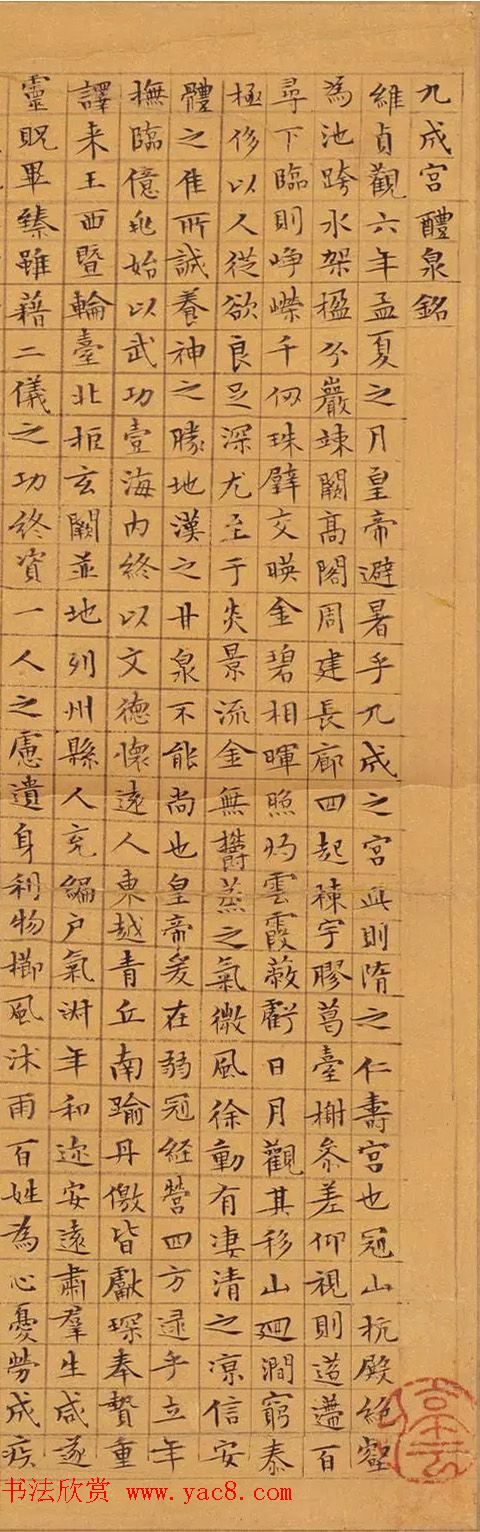 九成宮醴泉銘
維貞觀六年孟夏之月皇帝避暑乎九成之宮此則隋之仁壽宮也冠山抗殿絕壑
為池跨水架楹分巖竦闕高閣周建長廊四起棟宇膠葛臺榭參差仰視則迢遰百
尋下臨則崢嶸千仞珠壁交暎金碧相暉照灼雲霞蔽虧日月觀其移山迴澗窮泰
極侈以人從欲良足深尤至于炎景流金無欝蒸之氣微風徐動有凄清之涼信安
體之佳所誠養神之勝地漢之甘泉不能尚也皇帝爰在弱冠經營四方逮乎立年
撫臨億兆始以武功壹海內終以文德懷遠人東越青丘南踰丹儌皆獻琛奉贄重
譯来王西暨輪臺北拒玄闕並地列州縣人充編戶氣淋年和迩安遠肅羣生咸遂
靈貺畢臻雖藉二儀之功終資一人之慮遺身利物櫛風沐雨百姓為心憂勞成疾
书法欣赏 www.yac8.com